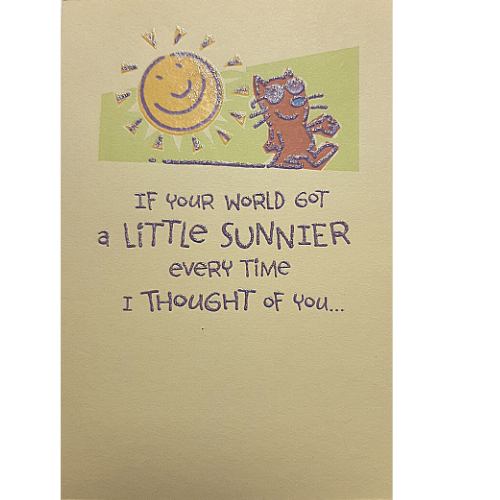 IF YOUR WORLD GOT
a LiTTLe SUNNIER
eVeRY TiMe
I THOUGHT OF YOU...